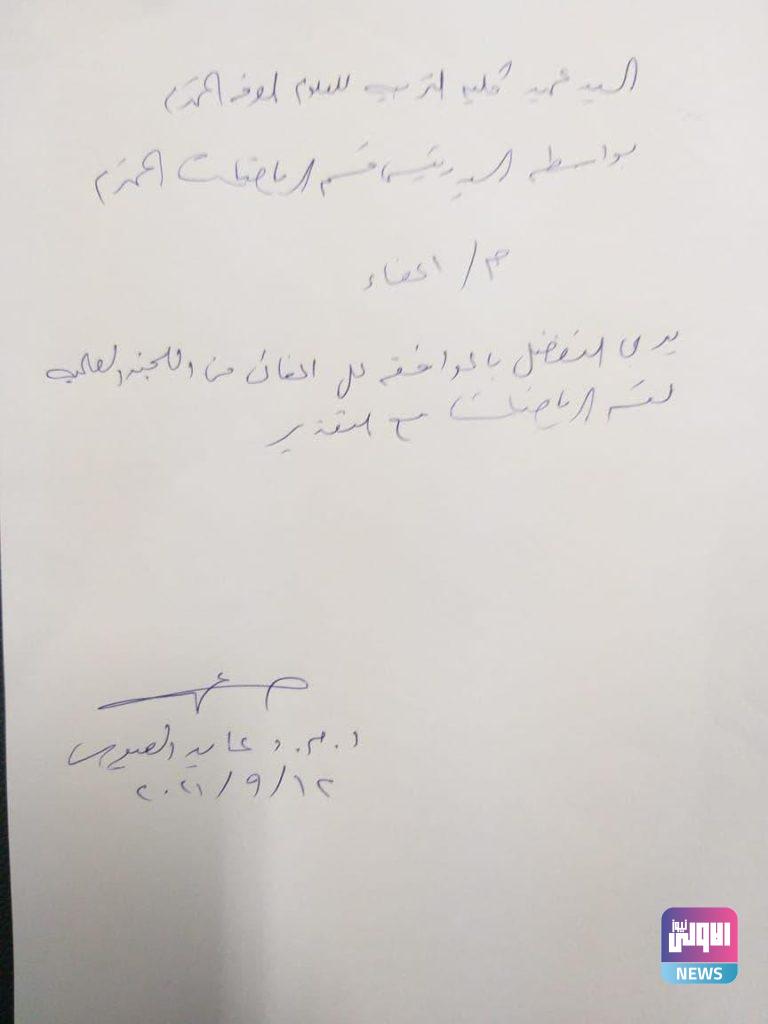 السيد عميد كلية التربيه للعلوم الصرفه المحترم
بواسطه السيد رئيس قسم الرياضيات المحترم
م / اعفاء
يرجى التفضل بالموافقه على اعفائي من اللجنه العلميه
لقسم الرياضيات مع التقدير
ا.م.د عايد
٢٠٢١/٩/١٢
الاولى نيوز
NEWS